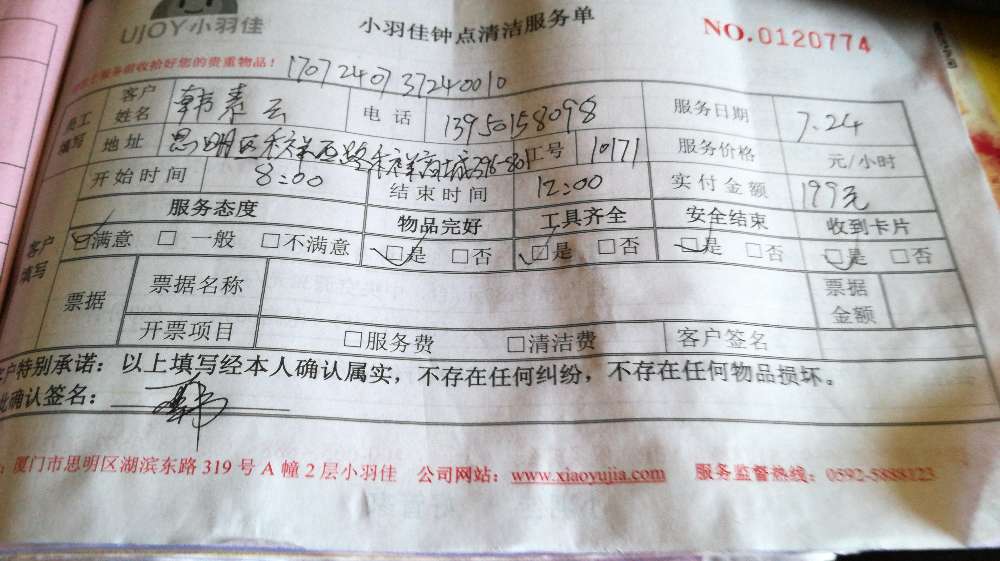 UJOY小羽佳
小羽佳钟点清洁服务单
NO.0120774
服务前收拾好您的贵重物品！ 1707240737240010
员工填写
客户姓名 韩素云 电话 13950158098 服务日期 7.24
地址 思明区禾祥西路禾祥商城296-801 工号 10171 服务价格 元/小时
开始时间 8:00 结束时间 12:00 实付金额 199元
客户填写
服务态度 物品完好 工具齐全 安全结束 收到卡片
☑满意 □ 一般 □不满意 ☑是 □否 ☑是 □否 ☑是 □否 ☑是 □否
票据 票据名称 票据金额
开票项目 □服务费 □清洁费 客户签名
客户特别承诺：以上填写经本人确认属实，不存在任何纠纷，不存在任何物品损坏。
确认签名： 韩
厦门市思明区湖滨东路 319 号 A 幢 2 层小羽佳 公司网站：www.xiaoyujia.com 服务监督热线：0592-5888123